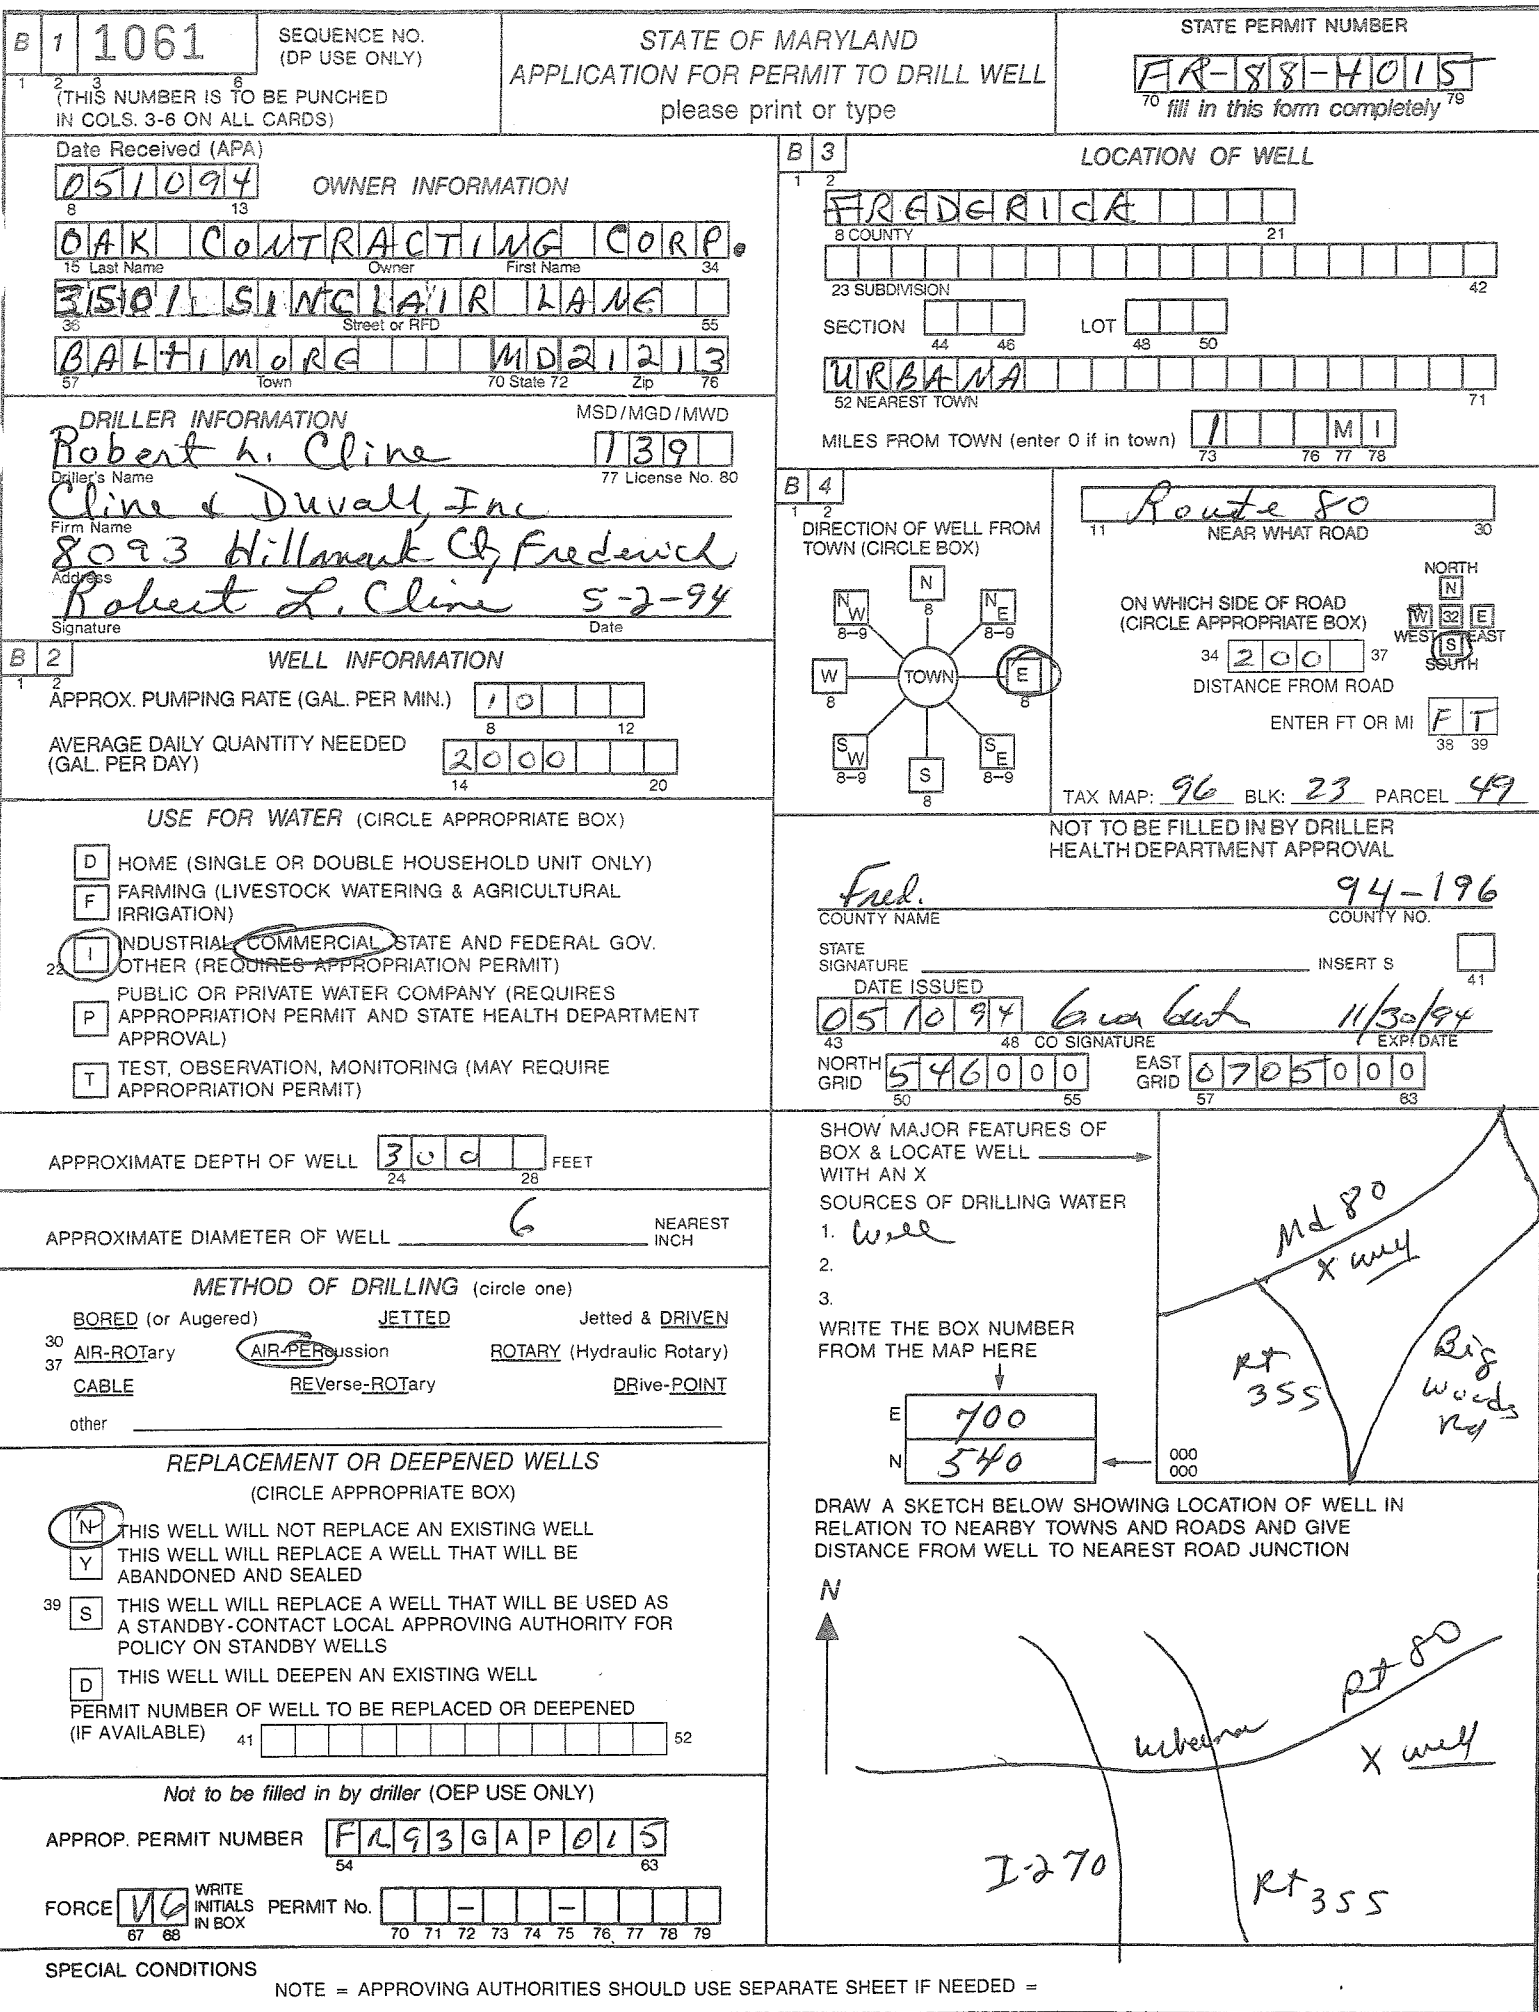 B 1 1061 SEQUENCE NO. (DP USE ONLY)
1 2 3 6
(THIS NUMBER IS TO BE PUNCHED
IN COLS. 3-6 ON ALL CARDS)
STATE OF MARYLAND
APPLICATION FOR PERMIT TO DRILL WELL
please print or type
STATE PERMIT NUMBER
FR-88-4015
70 fill in this form completely 79
Date Received (APA)
051094 OWNER INFORMATION
8 13
OAK CONTRACTING CORP.
15 Last Name Owner First Name 34
3501 SINCLAIR LANE
36 Street or RFD 55
BALTIMORE MD21213
57 Town 70 State 72 Zip 76
DRILLER INFORMATION MSD/MGD/MWD
Robert L. Cline 139
Driller's Name 77 License No. 80
Cline & Duvall, Inc
Firm Name
8093 Hillmark Ct, Frederick
Address
Robert L. Cline 5-2-94
Signature Date
B 2 WELL INFORMATION
1 2
APPROX. PUMPING RATE (GAL. PER MIN.) 10
8 12
AVERAGE DAILY QUANTITY NEEDED
(GAL. PER DAY) 2000
14 20
USE FOR WATER (CIRCLE APPROPRIATE BOX)
D HOME (SINGLE OR DOUBLE HOUSEHOLD UNIT ONLY)
F FARMING (LIVESTOCK WATERING & AGRICULTURAL
IRRIGATION)
I INDUSTRIAL, COMMERCIAL, STATE AND FEDERAL GOV.
22 OTHER (REQUIRES APPROPRIATION PERMIT)
PUBLIC OR PRIVATE WATER COMPANY (REQUIRES
P APPROPRIATION PERMIT AND STATE HEALTH DEPARTMENT
APPROVAL)
T TEST, OBSERVATION, MONITORING (MAY REQUIRE
APPROPRIATION PERMIT)
APPROXIMATE DEPTH OF WELL 300 FEET
24 28
APPROXIMATE DIAMETER OF WELL 6 NEAREST
INCH
METHOD OF DRILLING (circle one)
BORED (or Augered) JETTED Jetted & DRIVEN
30
37 AIR-ROTary AIR-PERcussion ROTARY (Hydraulic Rotary)
CABLE REVerse-ROTary DRive-POINT
other
REPLACEMENT OR DEEPENED WELLS
(CIRCLE APPROPRIATE BOX)
N THIS WELL WILL NOT REPLACE AN EXISTING WELL
Y THIS WELL WILL REPLACE A WELL THAT WILL BE
ABANDONED AND SEALED
39 S THIS WELL WILL REPLACE A WELL THAT WILL BE USED AS
A STANDBY-CONTACT LOCAL APPROVING AUTHORITY FOR
POLICY ON STANDBY WELLS
D THIS WELL WILL DEEPEN AN EXISTING WELL
PERMIT NUMBER OF WELL TO BE REPLACED OR DEEPENED
(IF AVAILABLE) 41 52
Not to be filled in by driller (OEP USE ONLY)
APPROP. PERMIT NUMBER FR93GAP015
54 63
FORCE VG WRITE INITIALS IN BOX PERMIT No. - -
67 68 70 71 72 73 74 75 76 77 78 79
B 3 LOCATION OF WELL
1 2
FREDERICK
8 COUNTY 21
23 SUBDIVISION 42
SECTION LOT
44 46 48 50
URBANA
52 NEAREST TOWN 71
MILES FROM TOWN (enter 0 if in town) 1 MI
73 76 77 78
B 4
1 2
DIRECTION OF WELL FROM
TOWN (CIRCLE BOX)
N
8
NW NE
8-9 8-9
W TOWN E
8 8
SW SE
8-9 8-9
S
8
Route 80
11 NEAR WHAT ROAD 30
ON WHICH SIDE OF ROAD
(CIRCLE APPROPRIATE BOX)
NORTH
N
W 32 E
WEST EAST
S
SOUTH
34 200 37
DISTANCE FROM ROAD
ENTER FT OR MI FT
38 39
TAX MAP: 96 BLK: 23 PARCEL 49
NOT TO BE FILLED IN BY DRILLER
HEALTH DEPARTMENT APPROVAL
Fred. 94-196
COUNTY NAME COUNTY NO.
STATE
SIGNATURE INSERT S
41
DATE ISSUED
051094 11/30/94
43 48 CO SIGNATURE EXP. DATE
NORTH GRID 546000 EAST GRID 0705000
50 55 57 63
SHOW MAJOR FEATURES OF
BOX & LOCATE WELL
WITH AN X
SOURCES OF DRILLING WATER
1. Well
2.
3.
WRITE THE BOX NUMBER
FROM THE MAP HERE
E 700
N 540
000
000
Md 80
X well
Rt
355
Big
Woods
Rd
DRAW A SKETCH BELOW SHOWING LOCATION OF WELL IN
RELATION TO NEARBY TOWNS AND ROADS AND GIVE
DISTANCE FROM WELL TO NEAREST ROAD JUNCTION
N
Rt 80
Urbana
X well
I-270
Rt 355
SPECIAL CONDITIONS
NOTE = APPROVING AUTHORITIES SHOULD USE SEPARATE SHEET IF NEEDED =